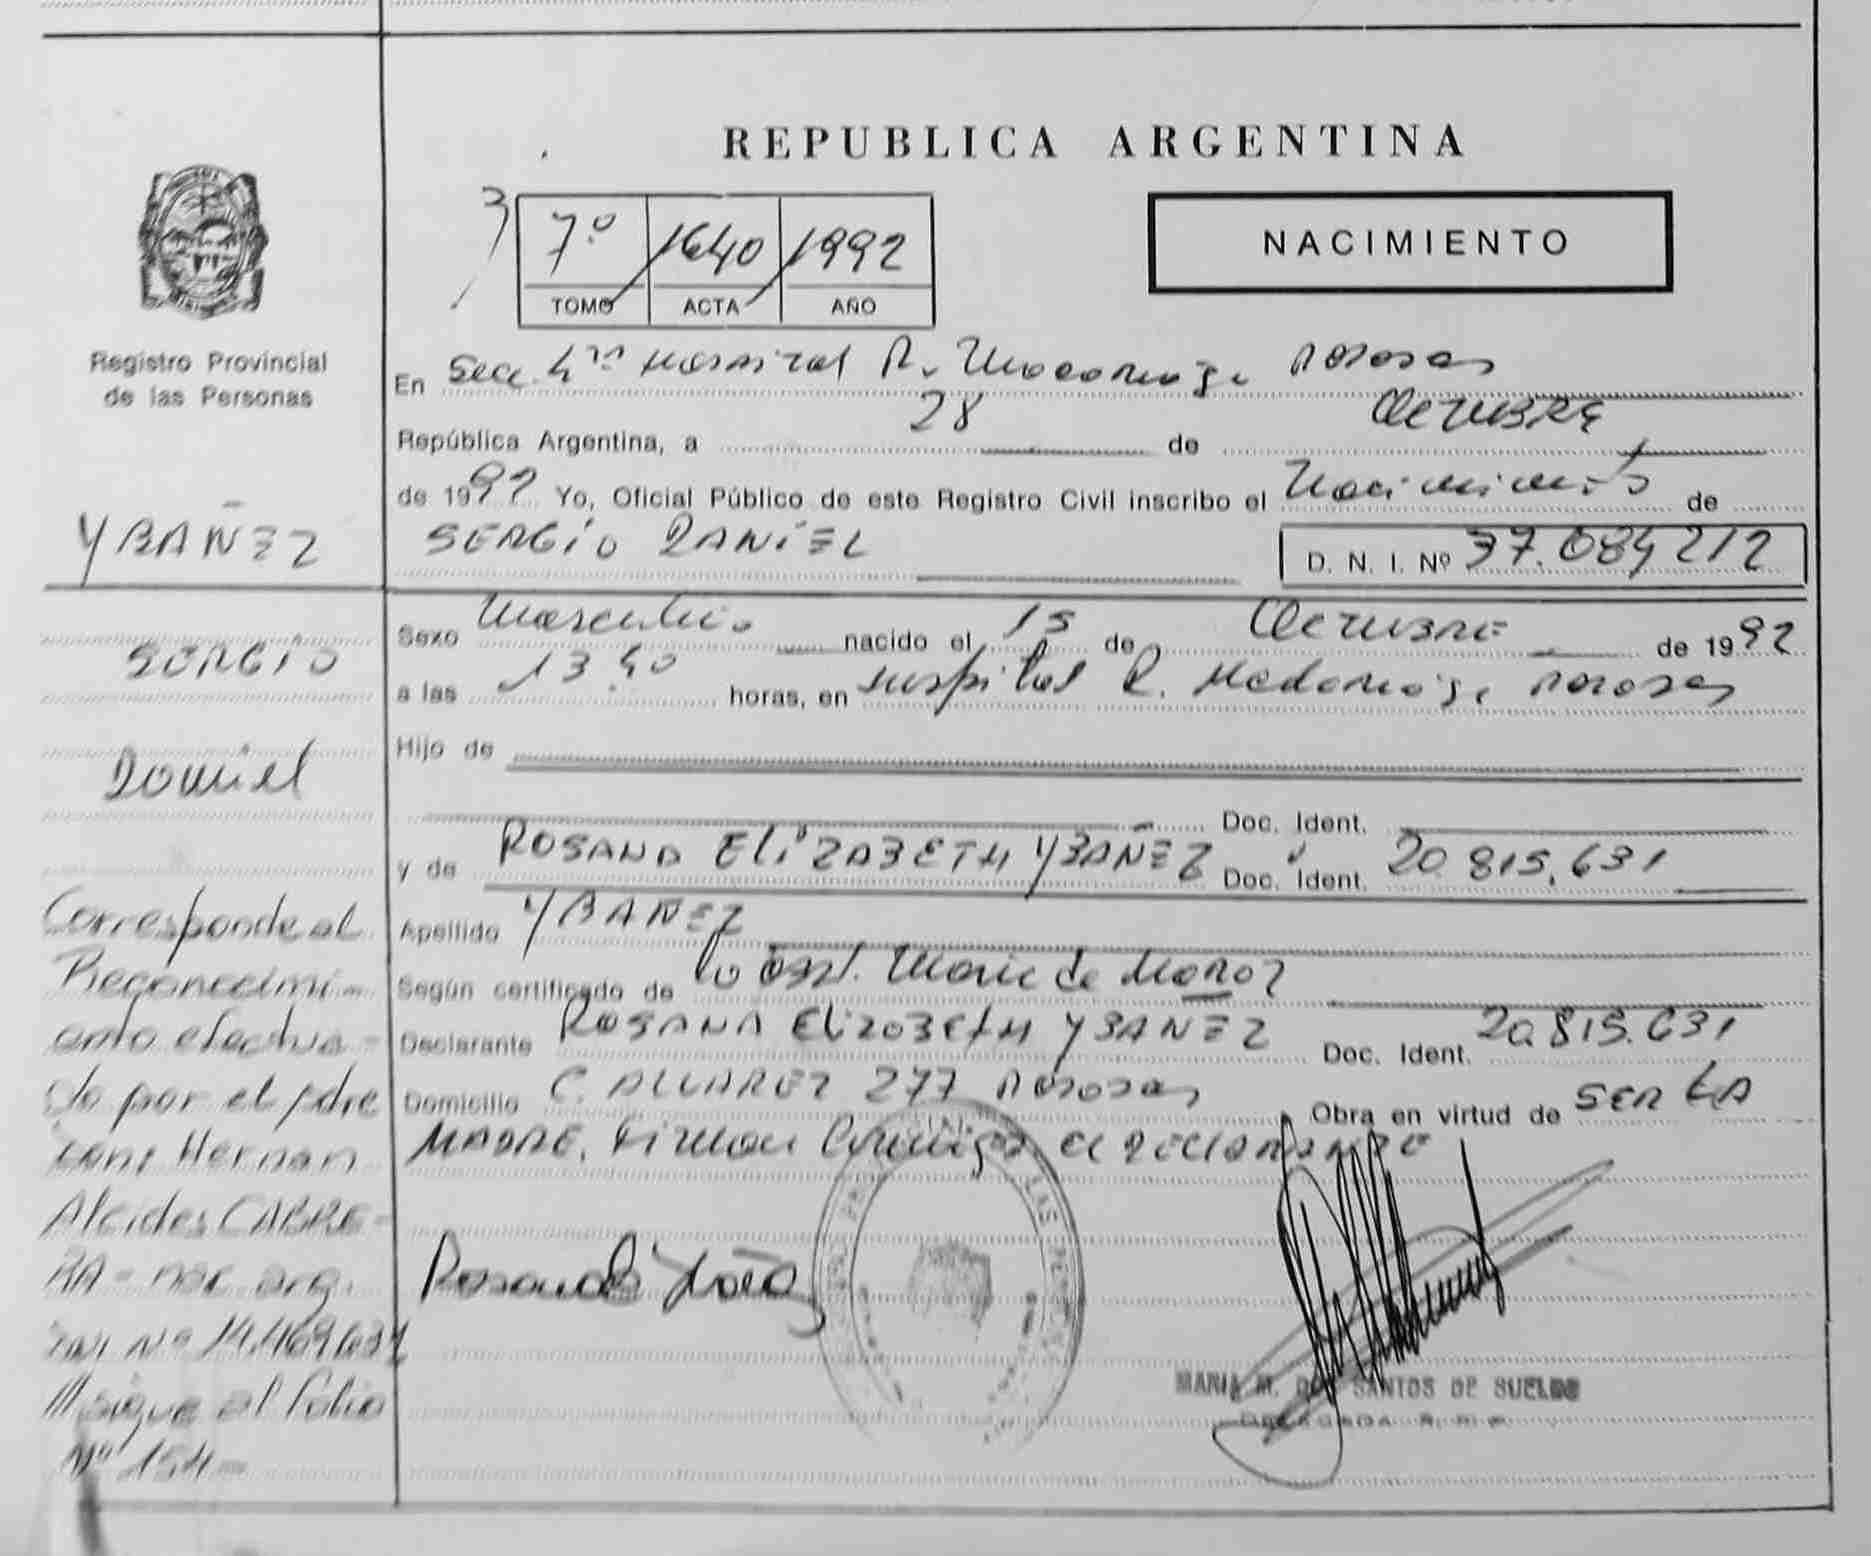 REPUBLICA ARGENTINA
3
7º 1640 1992
TOMO ACTA AÑO
NACIMIENTO
Registro Provincial
de las Personas
YBAÑEZ
SERGIO
Daniel
Corresponde al
Reconocimi-
ento efectua-
do por el pdre
Hernan
Alcides CABRE-
RA - nac arg.
DNI Nº 14.469.631
sigue al folio
Nº 154 -
En Secc. 4ta Hospital R. Posadas
República Argentina, a 28 de OCTUBRE
de 1992 Yo, Oficial Público de este Registro Civil inscribo el Nacimiento de
SERGIO DANIEL D. N. I. Nº 37.084 212
Sexo Masculino nacido el 15 de OCTUBRE de 1992
a las 13.40 horas, en Hospital R. Madariaga Posadas
Hijo de
Doc. Ident.
y de ROSANA ELIZABETH YBAÑEZ Doc. Ident. 20.815.631
Apellido YBAÑEZ
Según certificado de la Obst. Maria de
Declarante ROSANA ELIZABETH YBAÑEZ Doc. Ident. 20.815.631
Domicilio C. ALVAREZ 277 POSADAS Obra en virtud de SER LA
MADRE. Firman Conmigo el declarante
MARIA M. DOS SANTOS DE SUELDO
DELEGADA R. P. P.